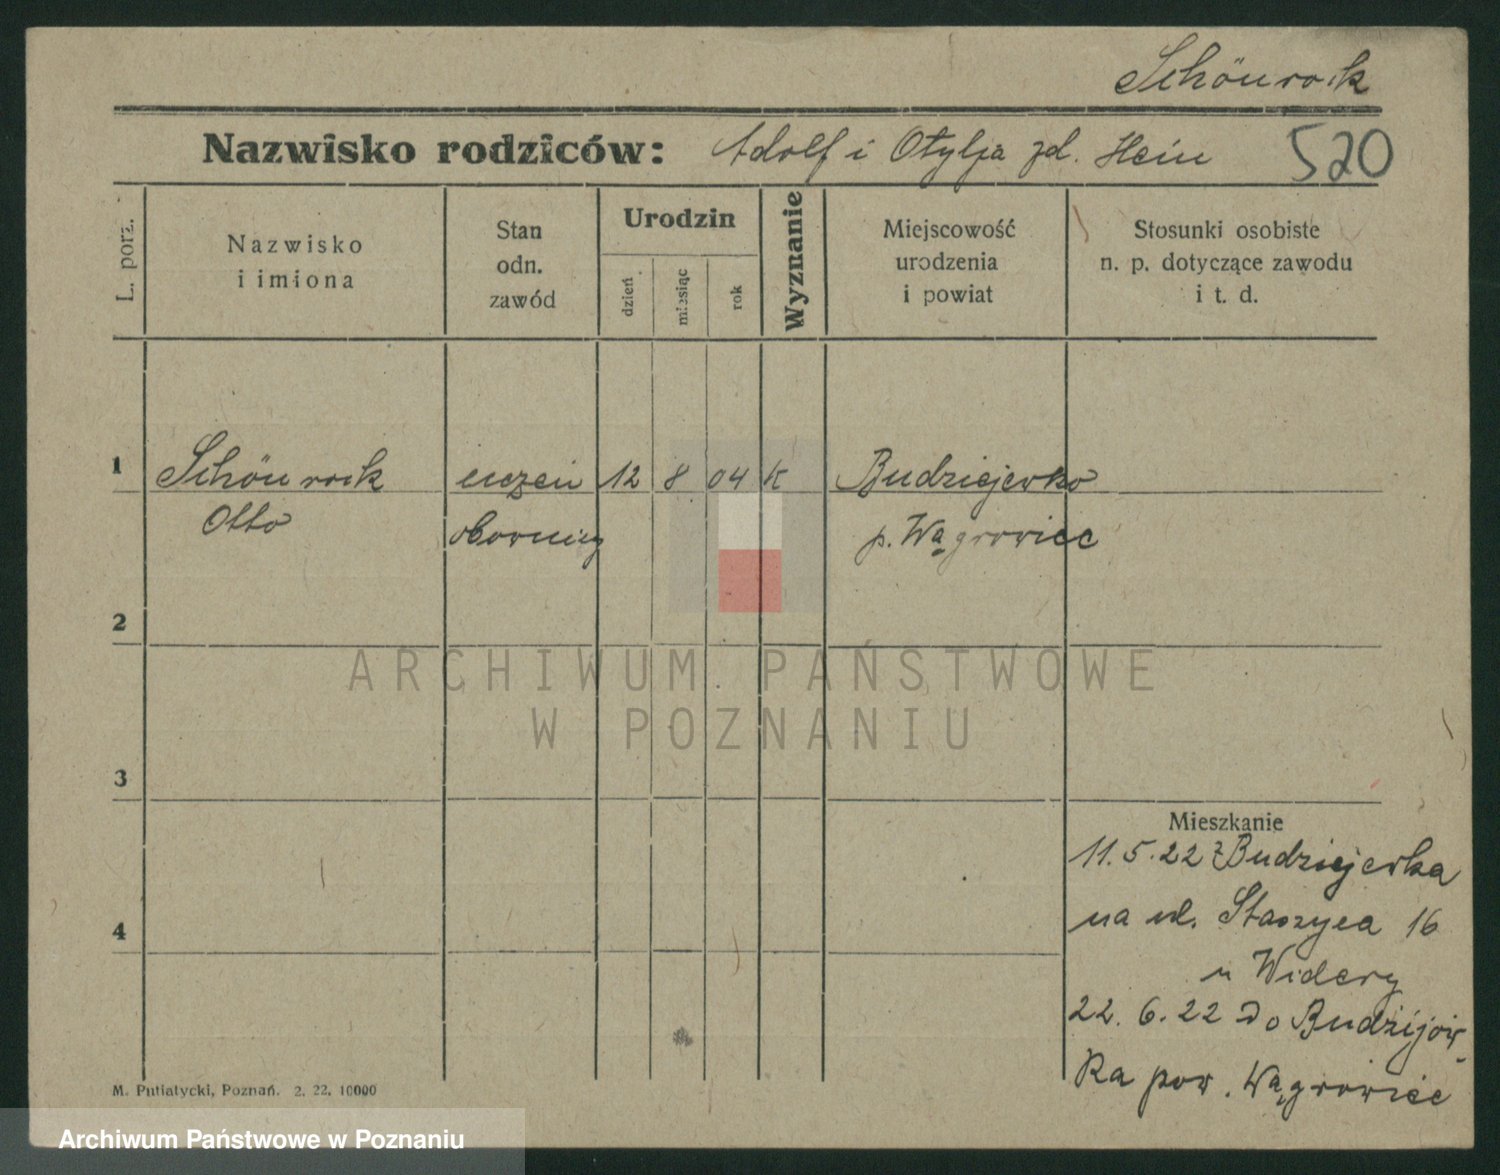 Schönrock
Nazwisko rodziców: Adolf i Otylja zd. Hein 520
L. porz.
Nazwisko
i imiona
Stan
odn.
zawód
Urodzin
dzień
miesiąc
rok
Wyznanie
Miejscowość
urodzenia
i powiat
Stosunki osobiste
n. p. dotyczące zawodu
i t. d.
1 Schönrock uczeń 12 8 04 K Budziejewko
Otto p. Wągrowiec
2
ARCHIWUM PAŃSTWOWE
W POZNANIU
3
Mieszkanie
11.5.22 z Budziejewka
na ul. Staszyca 16
4
u Widery
22.6.22 do Budzijów-
ka pow. Wągrowiec
M. Putiatycki, Poznań. 2. 22. 10000
Archiwum Państwowe w Poznaniu